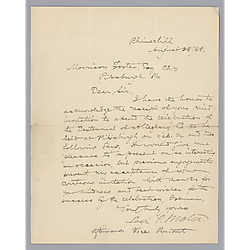 Rhinecliff
August 28/88.
Morrison Foster, Esq Chn
Pittsburgh Pa
Dear Sir,
I have the honor to
acknowledge the receipt of your kind
invitation to attend the celebration of
the Centennial of Allegheny Co to be
held at Pittsburgh on Sept. and two
following days. It would give me
pleasure to be present on so interesting
an occasion but previous engagements
prevent my acceptance of your
courteous invitation with thanks for
your kindness and best wishes for the
success of the celebration I remain,
Very truly yours
Levi P. Morton
Afterwards Vice President